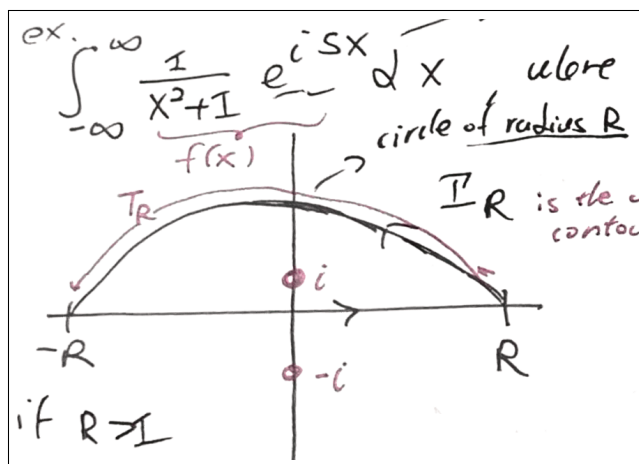 ex.
∫_{-∞}^{∞} I/(x²+I) e^{i5x} dx where
f(x)
circle of radius R
T_R
Γ_R is the
contou
i
-R R
-i
if R>I